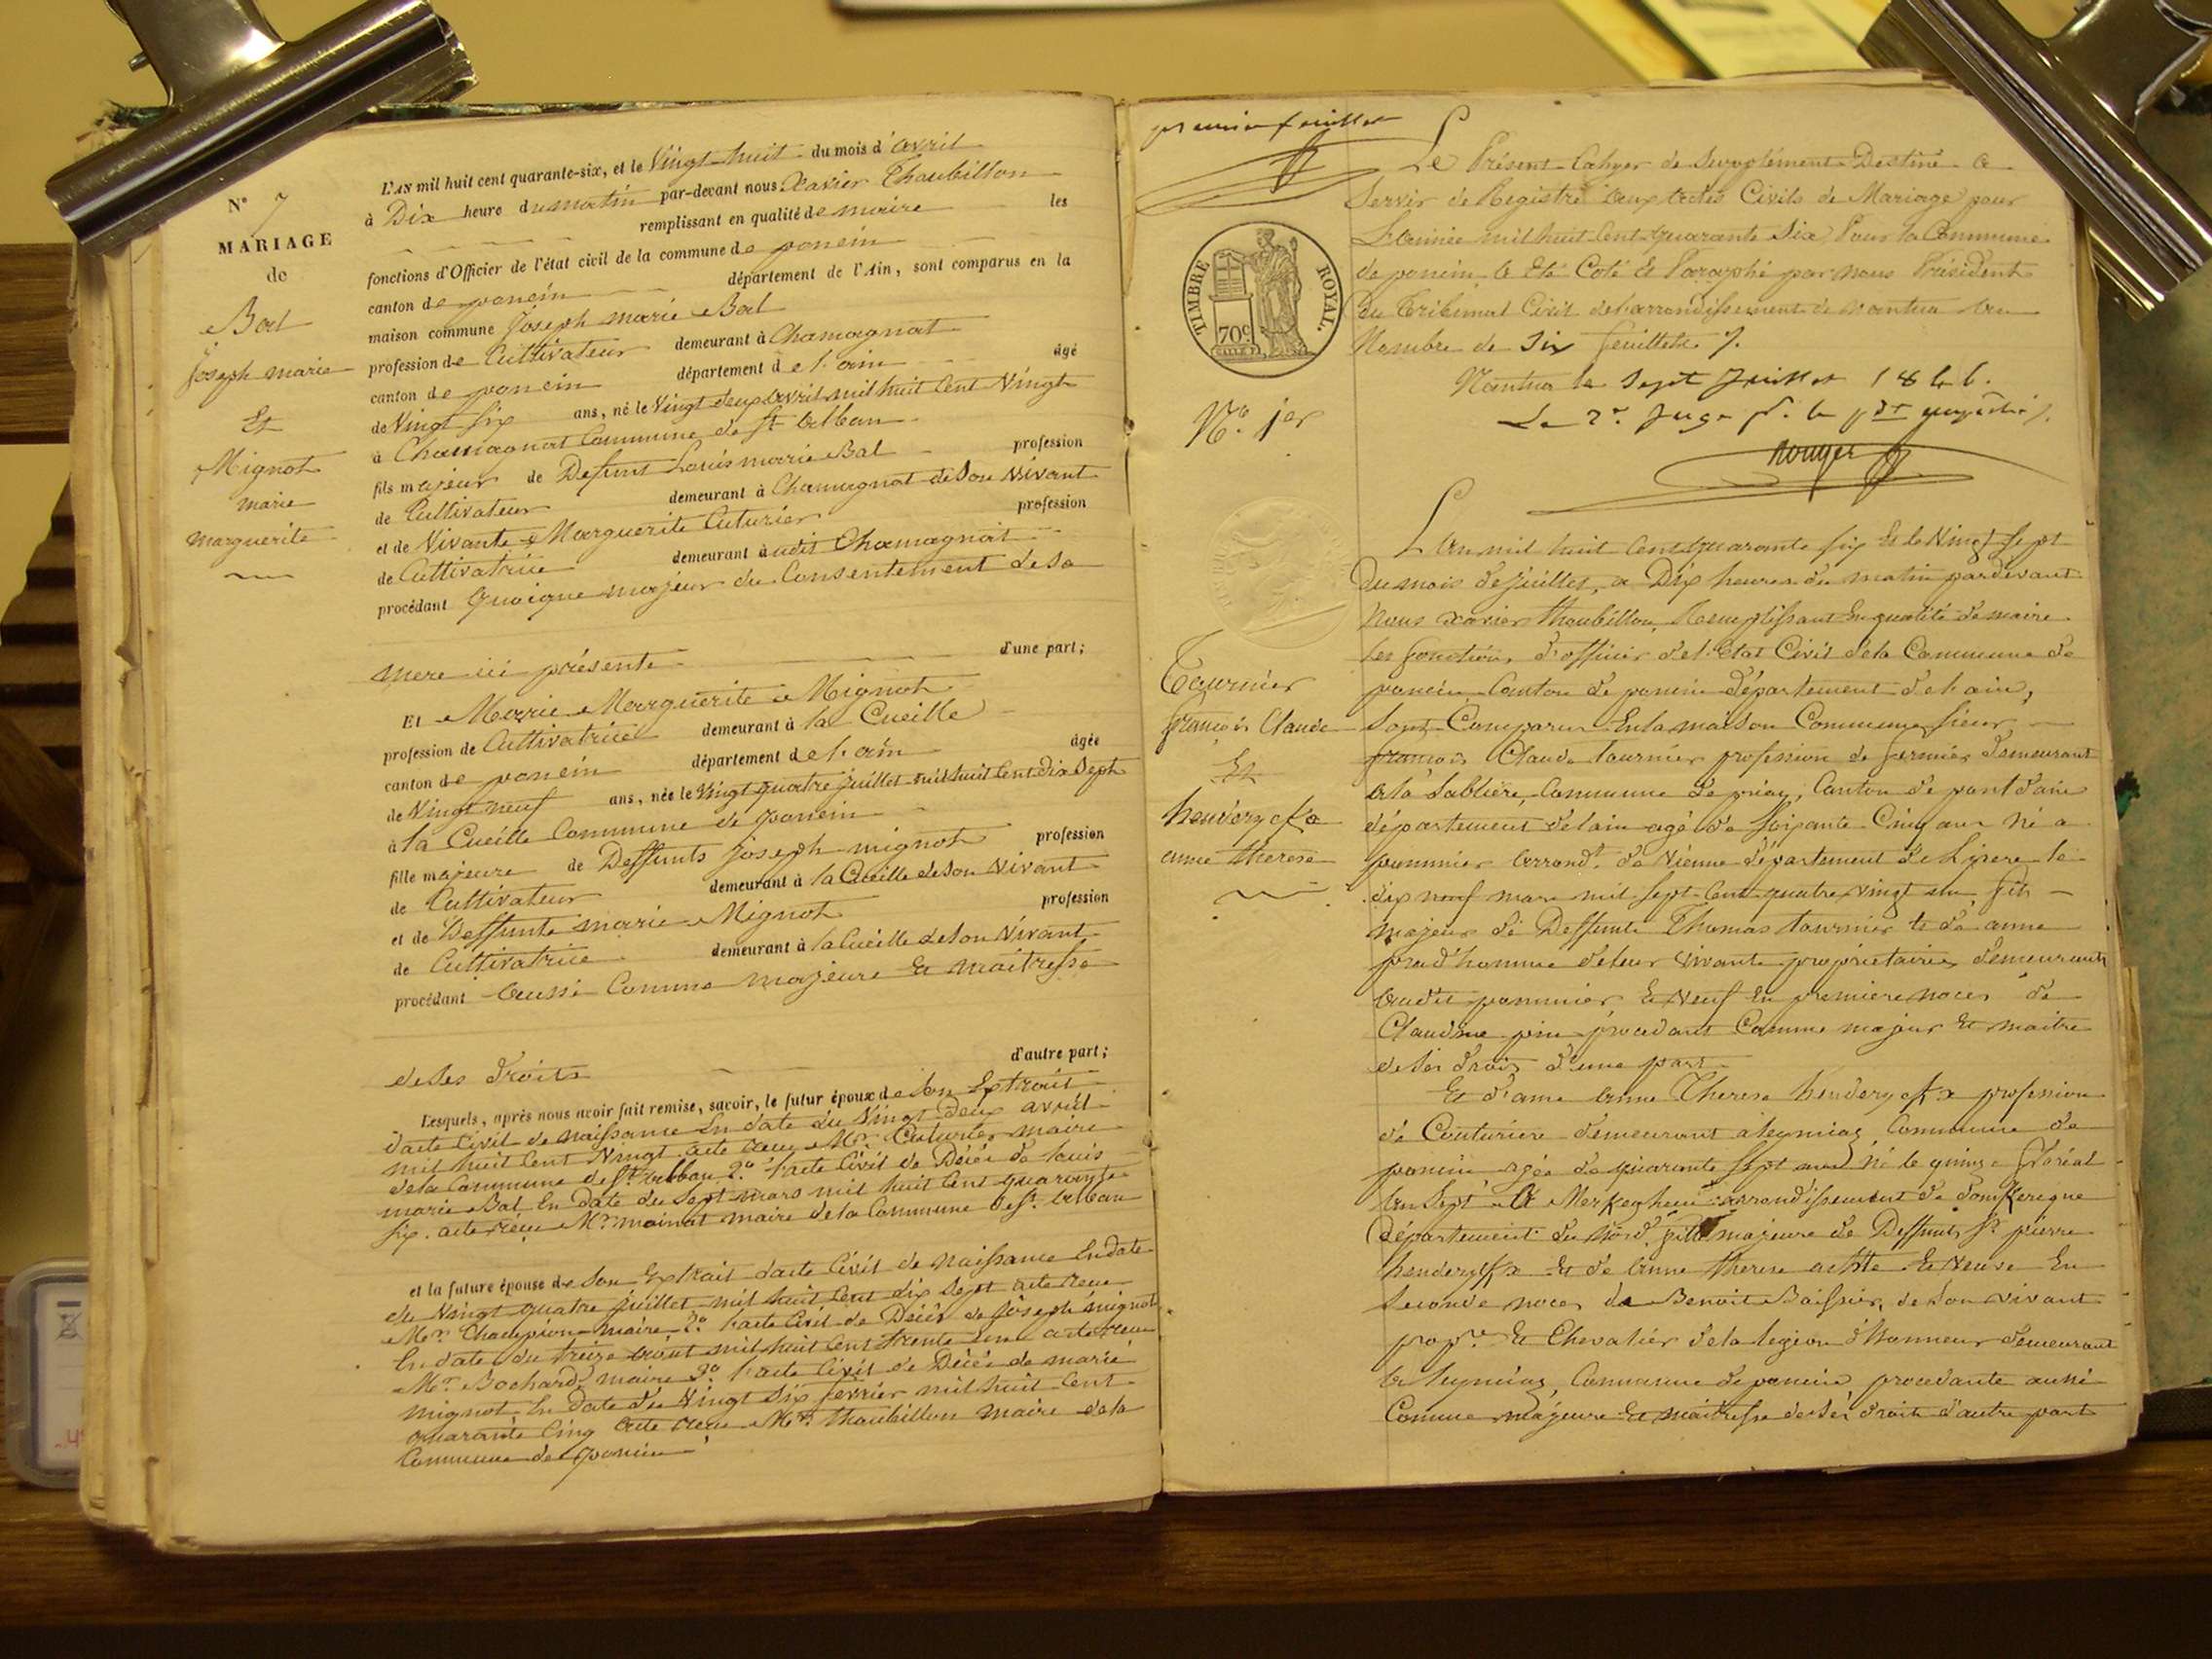 N° 7
MARIAGE
de
Bal
Joseph marie
Et
Mignot
marie
marguerite
L'AN mil huit cent quarante-six, et le Vingt huit du mois d'avril
à Dix heure du matin par-devant nous Xavier Thoubillon
remplissant en qualité de maire les
fonctions d'Officier de l'état civil de la commune de poncin
canton de poncin département de l'Ain, sont comparus en la
maison commune Joseph marie Bal
profession de Cultivateur demeurant à Chamagnat
canton de poncin département de l'ain âgé
de Vingt six ans, né le Vingt deux avril mil huit Cent Vingt
à Chamagnat Commune de St. alban
fils majeur de Defunt Louis marie Bal profession
de Cultivateur demeurant à Chamagnat de Son Vivant
et de Vivante Marguerite Cuturier profession
de Cultivatrice demeurant à udit Chamagnat
procédant quoique majeur du Consentement de Sa
mere ici présente d'une part;
Et Marie Marguerite Mignot
profession de Cultivatrice demeurant à la Cueille
canton de poncin département de l'ain âgée
de Vingt neuf ans, née le Vingt quatre juillet mil huit Cent Dix Sept
à la Cueille Commune de poncin
fille majeure de Deffunts Joseph mignot profession
de Cultivateur demeurant à la Cueille de Son Vivant
et de Deffunte marie Mignot profession
de Cultivatrice demeurant à la Cueille de Son Vivant
procédant aussi Comme majeure Et maitresse
de Ses droits d'autre part;
Lesquels, après nous avoir fait remise, savoir, le futur époux de Son Extrait
d'acte Civil de naissance En date du Vingt Deux avril
mil huit Cent Vingt acte reçu Mr. Cuturier maire
de la Commune de St. alban 2° l'acte Civil de Décés de louis
marie Bal En date du Sept mars mil huit Cent quarante
six acte reçu Mr. mainat maire de la Commune de St. alban
et la future épouse de Son Extrait d'acte Civil de naissance En date
du Vingt quatre juillet mil huit Cent dix Sept acte reçu
Mr. Champion maire 2° l'acte Civil de Décés de Joseph mignot
En date du treize août mil huit Cent trente acte reçu
Mr. Bochard maire 3° l'acte Civil de Décés de marie
mignot En date du Vingt Six fevrier mil huit Cent
quarante Cinq acte reçu Mr. thoubillon maire de la
Commune de poncin
premier feuillet
TIMBRE ROYAL.
70c.
N°. 1er
Le Présent Cahyer de Supplément Destiné a
Servir de Registre aux actes Civils de Mariage pour
L'année mil huit Cent quarante Six, Pour la Commune
de poncin, a Eté Coté Et Paraphé par nous Président
Du Tribunal Civil de l'arrondissement de nantua au
Nombre de Six feuillets
Nantua le Sept Juillet 1846.
Le 2e. Juge pr. le pdt empêché
Rouyer
Tournier
François Claude
Et
henderyckx
anne therese
L'an mil huit Cent quarante six Et le Vingt Sept
Du mois de Juillet, a Dix heures du matin pardevant
Nous xavier thoubillon, Remplissant En qualité de maire
Les fonctions d'officier de l'Etat Civil de la Commune de
poncin Canton de poncin département de l'ain,
Sont Comparus En la maison Commune Sieur
françois Claude tournier profession de fermier demeurant
a la Sablière, Commune de priay, Canton de pont d'ain
département de l'ain agé de Soixante Cinq ans né a
pommier arrondt. de Vienne département de l'isere le
dix neuf mars mil Sept Cent quatre vingt un fils
majeur de Deffunts Thomas tournier Et de anne
prud'homme de leur Vivant propriétaires demeurants
audit pommier Et Veuf En premiere noces de
Claudine pin procédant Comme majeur Et maitre
de Ses droits d'une part
Et d'ame anne Therese henderyckx profession
de Couturiere demeurant a leymiaz Commune de
poncin agée de quarante Sept ans né le quinze floréal
an Sept a Merkeghem arrondissement de domkerque
département du nord, fille majeure de Deffunts Sr. pierre
henderyckx Et de anne therese Et Veuve En
Seconde noces de Benoit Boissier, de Son vivant
propre. Et Chevalier de la legion d'honneur demeurant
a leymiaz, Commune de poncin, procedante aussi
Comme majeure Et maitresse de Ses droits d'autre part